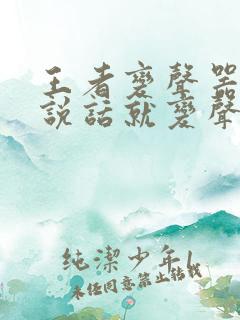 王者變聲器
説話就變聲
純潔少年1
未经同意禁止转载